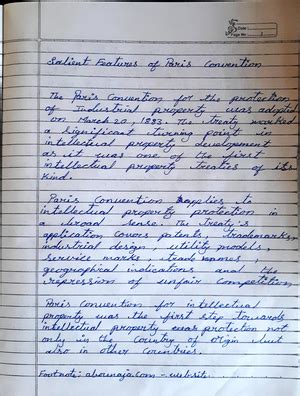 Date :
Page No :
Salient Features of Paris Convention
The Paris Convention for the protection
of Industrial property was adopted
on March 20, 1883. The treaty marked
a significant turning point in
intellectual property development
as it was one of the first
intellectual property treaties of its
kind.
Paris Convention applies to
intellectual property protection in
a broad sense. The treaty's
application covers patents, trademarks,
industrial design, utility models,
service marks, trade names,
geographical indications and the
repression of unfair competition.
Paris Convention for intellectual
property was the first step towards
intellectual property protection not
only in the Country of Origin but
also in other Countries.
Footnote: abounaja.com - website